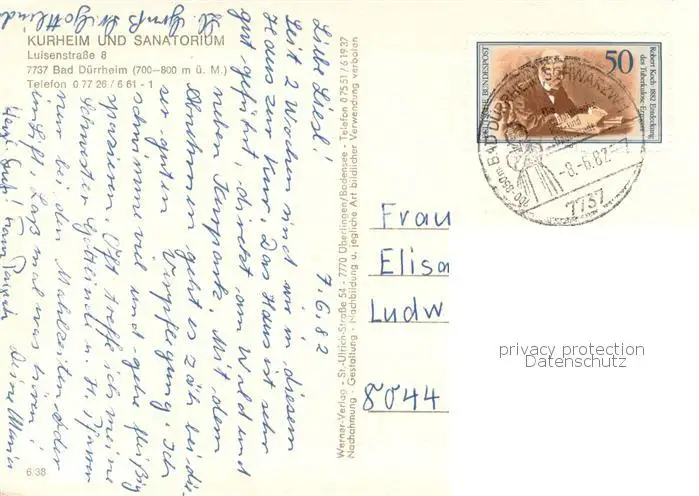 KURHEIM UND SANATORIUM
Luisenstraße 8
7737 Bad Dürrheim (700–800 m ü. M.)
Telefon 0 77 26 / 6 61 - 1
7.6.82
Liebe Liesl!
Seit 2 Wochen sind wir in diesem
Haus zur Kur. Das Haus ist sehr
gut geführt, direkt am Wald und
neben Kurpark. Mit dem
Abnehmen geht es zäh bei die-
ser guten Verpflegung. Ich
schwimme viel und gehe fleißig
spazieren. Oft treffe ich meine
Schwester Gottlinde u. H. Pfarrer
nur bei den Mahlzeiten oder
im Lift. Laß mal was hören!
Deine Maria
Gruß Gottlinde
Herzl. Gruß
6/38
Werner-Verlag - St.-Ulrich-Straße 54 - 7770 Überlingen/Bodensee - Telefon 07551/61937
Nachahmung - Gestaltung - Nachbildung u. jegliche Art bildlicher Verwendung verboten
DEUTSCHE BUNDESPOST
50
Robert Koch 1882 Entdeckung
des Tuberkulose-Erregers
BAD DÜRRHEIM SCHWARZW
700-850m
-8.-6.82-
7737
Frau
Elisa
Ludw
8044
privacy protection
Datenschutz